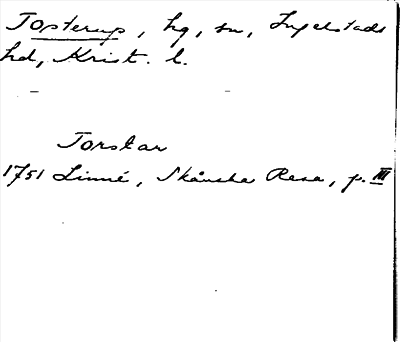 Tosterup, hg, sn, Ingelstads
hd, Krist. l.
Torstar
1751 Linné, Skånska Resa, p. III